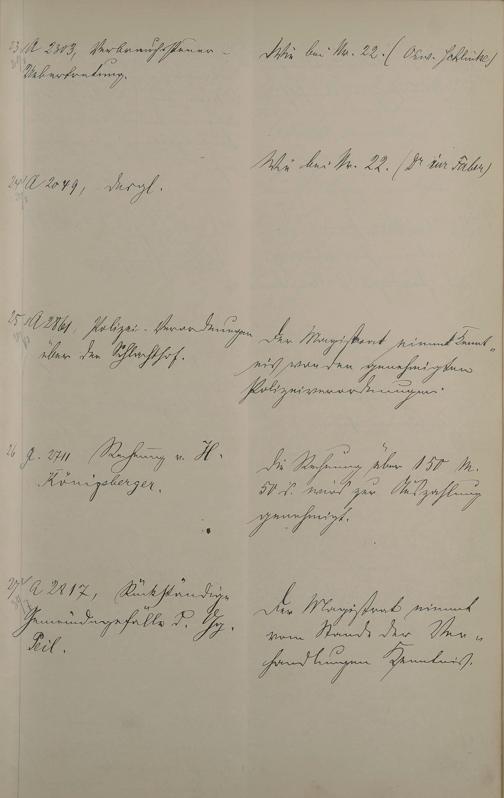 23 A 2303, Verbrauchssteuer-
Uebertretung.
Wie bei Nr. 22. (Osw.
24 A 2049, desgl.
Wie bei Nr. 22. (Dr jur Faber)
25 A 2861, Polizei-Verordnungen
über den Schlachthof.
Der Magistrat nimmt Kennt-
nis von den genehmigten
Polizeiverordnungen.
26 g. 2711 Rechnung v. H.
Königsberger.
Die Rechnung über 150 M.
50 d. wird zur Auszahlung
genehmigt.
27 A 2817, Rückständige
Gemeindegefälle d. Gg.
Peil.
Der Magistrat nimmt
vom Stande der Ver-
handlungen Kenntnis.